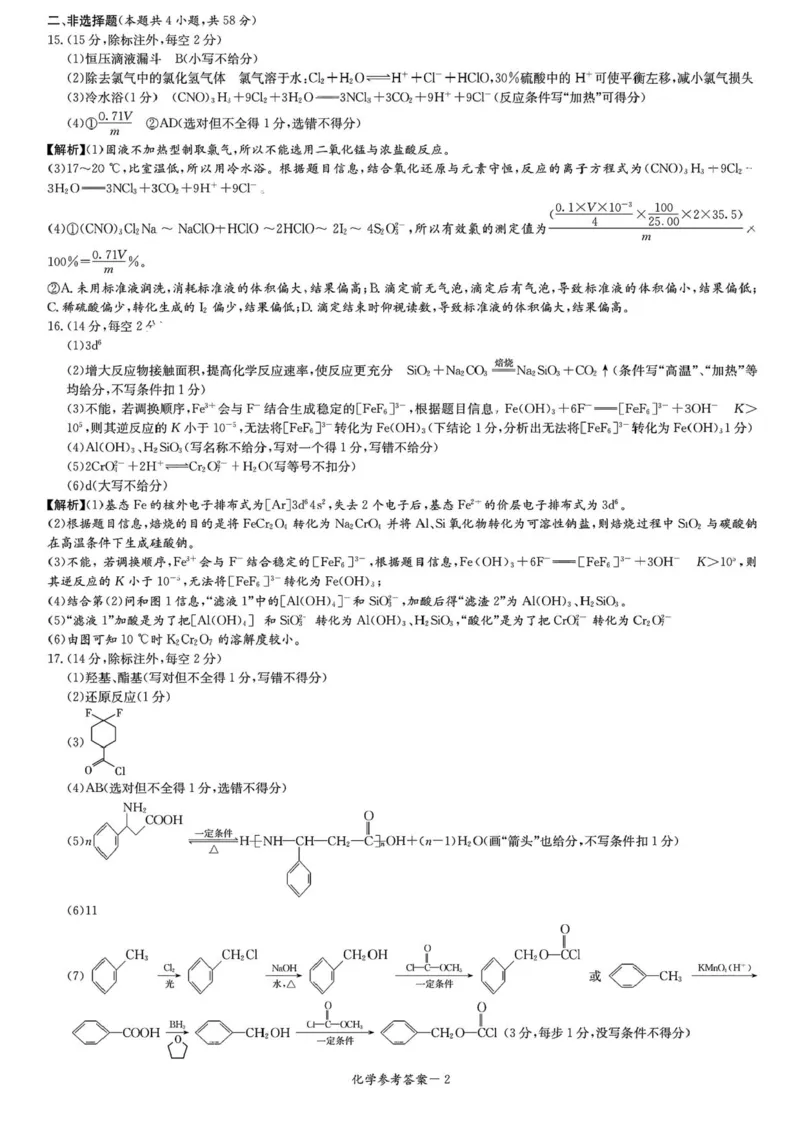 二、非选择题(本题共4小题,共58分)
15.(15分,除标注外,每空2分)
(1)恒压滴液漏斗 B(小写不给分)
(2)除去氯气中的氯化氢气体 氯气溶于水:Cl₂+H₂O⇌H⁺+Cl⁻+HClO,30%硫酸中的H⁺可使平衡左移,减小氯气损失
(3)冷水浴(1分) (CNO)₃H₃+9Cl₂+3H₂O══3NCl₃+3CO₂+9H⁺+9Cl⁻(反应条件写“加热”可得分)
(4)①0.71V/m ②AD(选对但不全得1分,选错不得分)
【解析】(1)固液不加热型制取氯气,所以不能选用二氧化锰与浓盐酸反应。
(3)17~20 ℃,比室温低,所以用冷水浴。根据题目信息,结合氧化还原与元素守恒,反应的离子方程式为(CNO)₃H₃+9Cl₂+
3H₂O══3NCl₃+3CO₂+9H⁺+9Cl⁻。
(4)①(CNO)₃Cl₂Na ~ NaClO+HClO ~2HClO~ 2I₂~ 4S₂O₃²⁻,所以有效氯的测定值为 (0.1×V×10⁻³/4×100/25.00×2×35.5)/m ×
100%=0.71V/m%。
②A.未用标准液润洗,消耗标准液的体积偏大,结果偏高;B.滴定前无气泡,滴定后有气泡,导致标准液的体积偏小,结果偏低;
C.稀硫酸偏少,转化生成的I₂偏少,结果偏低;D.滴定结束时仰视读数,导致标准液的体积偏大,结果偏高。
16.(14分,每空2分)
(1)3d⁶
(2)增大反应物接触面积,提高化学反应速率,使反应更充分 SiO₂+Na₂CO₃ ══焙烧══ Na₂SiO₃+CO₂↑(条件写“高温”、“加热”等
均给分,不写条件扣1分)
(3)不能,若调换顺序,Fe³⁺会与F⁻结合生成稳定的[FeF₆]³⁻,根据题目信息,Fe(OH)₃+6F⁻══[FeF₆]³⁻+3OH⁻ K>
10⁵,则其逆反应的K小于10⁻⁵,无法将[FeF₆]³⁻转化为Fe(OH)₃(下结论1分,分析出无法将[FeF₆]³⁻转化为Fe(OH)₃1分)
(4)Al(OH)₃、H₂SiO₃(写名称不给分,写对一个得1分,写错不给分)
(5)2CrO₄²⁻+2H⁺⇌Cr₂O₇²⁻+H₂O(写等号不扣分)
(6)d(大写不给分)
【解析】(1)基态Fe的核外电子排布式为[Ar]3d⁶4s²,失去2个电子后,基态Fe²⁺的价层电子排布式为3d⁶。
(2)根据题目信息,焙烧的目的是将FeCr₂O₄转化为Na₂CrO₄并将Al、Si氧化物转化为可溶性钠盐,则焙烧过程中SiO₂与碳酸钠
在高温条件下生成硅酸钠。
(3)不能,若调换顺序,Fe³⁺会与F⁻结合稳定的[FeF₆]³⁻,根据题目信息,Fe(OH)₃+6F⁻══[FeF₆]³⁻+3OH⁻ K>10⁵,则
其逆反应的K小于10⁻⁵,无法将[FeF₆]³⁻转化为Fe(OH)₃;
(4)结合第(2)问和图1信息,“滤液1”中的[Al(OH)₄]⁻和SiO₃²⁻,加酸后得“滤渣2”为Al(OH)₃、H₂SiO₃。
(5)“滤液1”加酸是为了把[Al(OH)₄] 和SiO₃²⁻转化为Al(OH)₃、H₂SiO₃,“酸化”是为了把CrO₄²⁻转化为Cr₂O₇²⁻
(6)由图可知10 ℃时K₂Cr₂O₇的溶解度较小。
17.(14分,除标注外,每空2分)
(1)羟基、酯基(写对但不全得1分,写错不得分)
(2)还原反应(1分)
F F
(3)
O Cl
(4)AB(选对但不全得1分,选错不得分)
NH₂
COOH
O
(5)n 一定条件 △ H[NH—CH—CH₂—C]ₙOH+(n-1)H₂O(画“箭头”也给分,不写条件扣1分)
(6)11
O
CH₃ CH₂Cl CH₂OH O CH₂O—CCl
(7) Cl₂ 光 NaOH 水,△ Cl—C—OCH₃ 一定条件 或 CH₃ KMnO₄(H⁺)
O O
COOH BH₃ O CH₂OH Cl—C—OCH₃ 一定条件 CH₂O—CCl (3分,每步1分,没写条件不得分)
化学参考答案－2